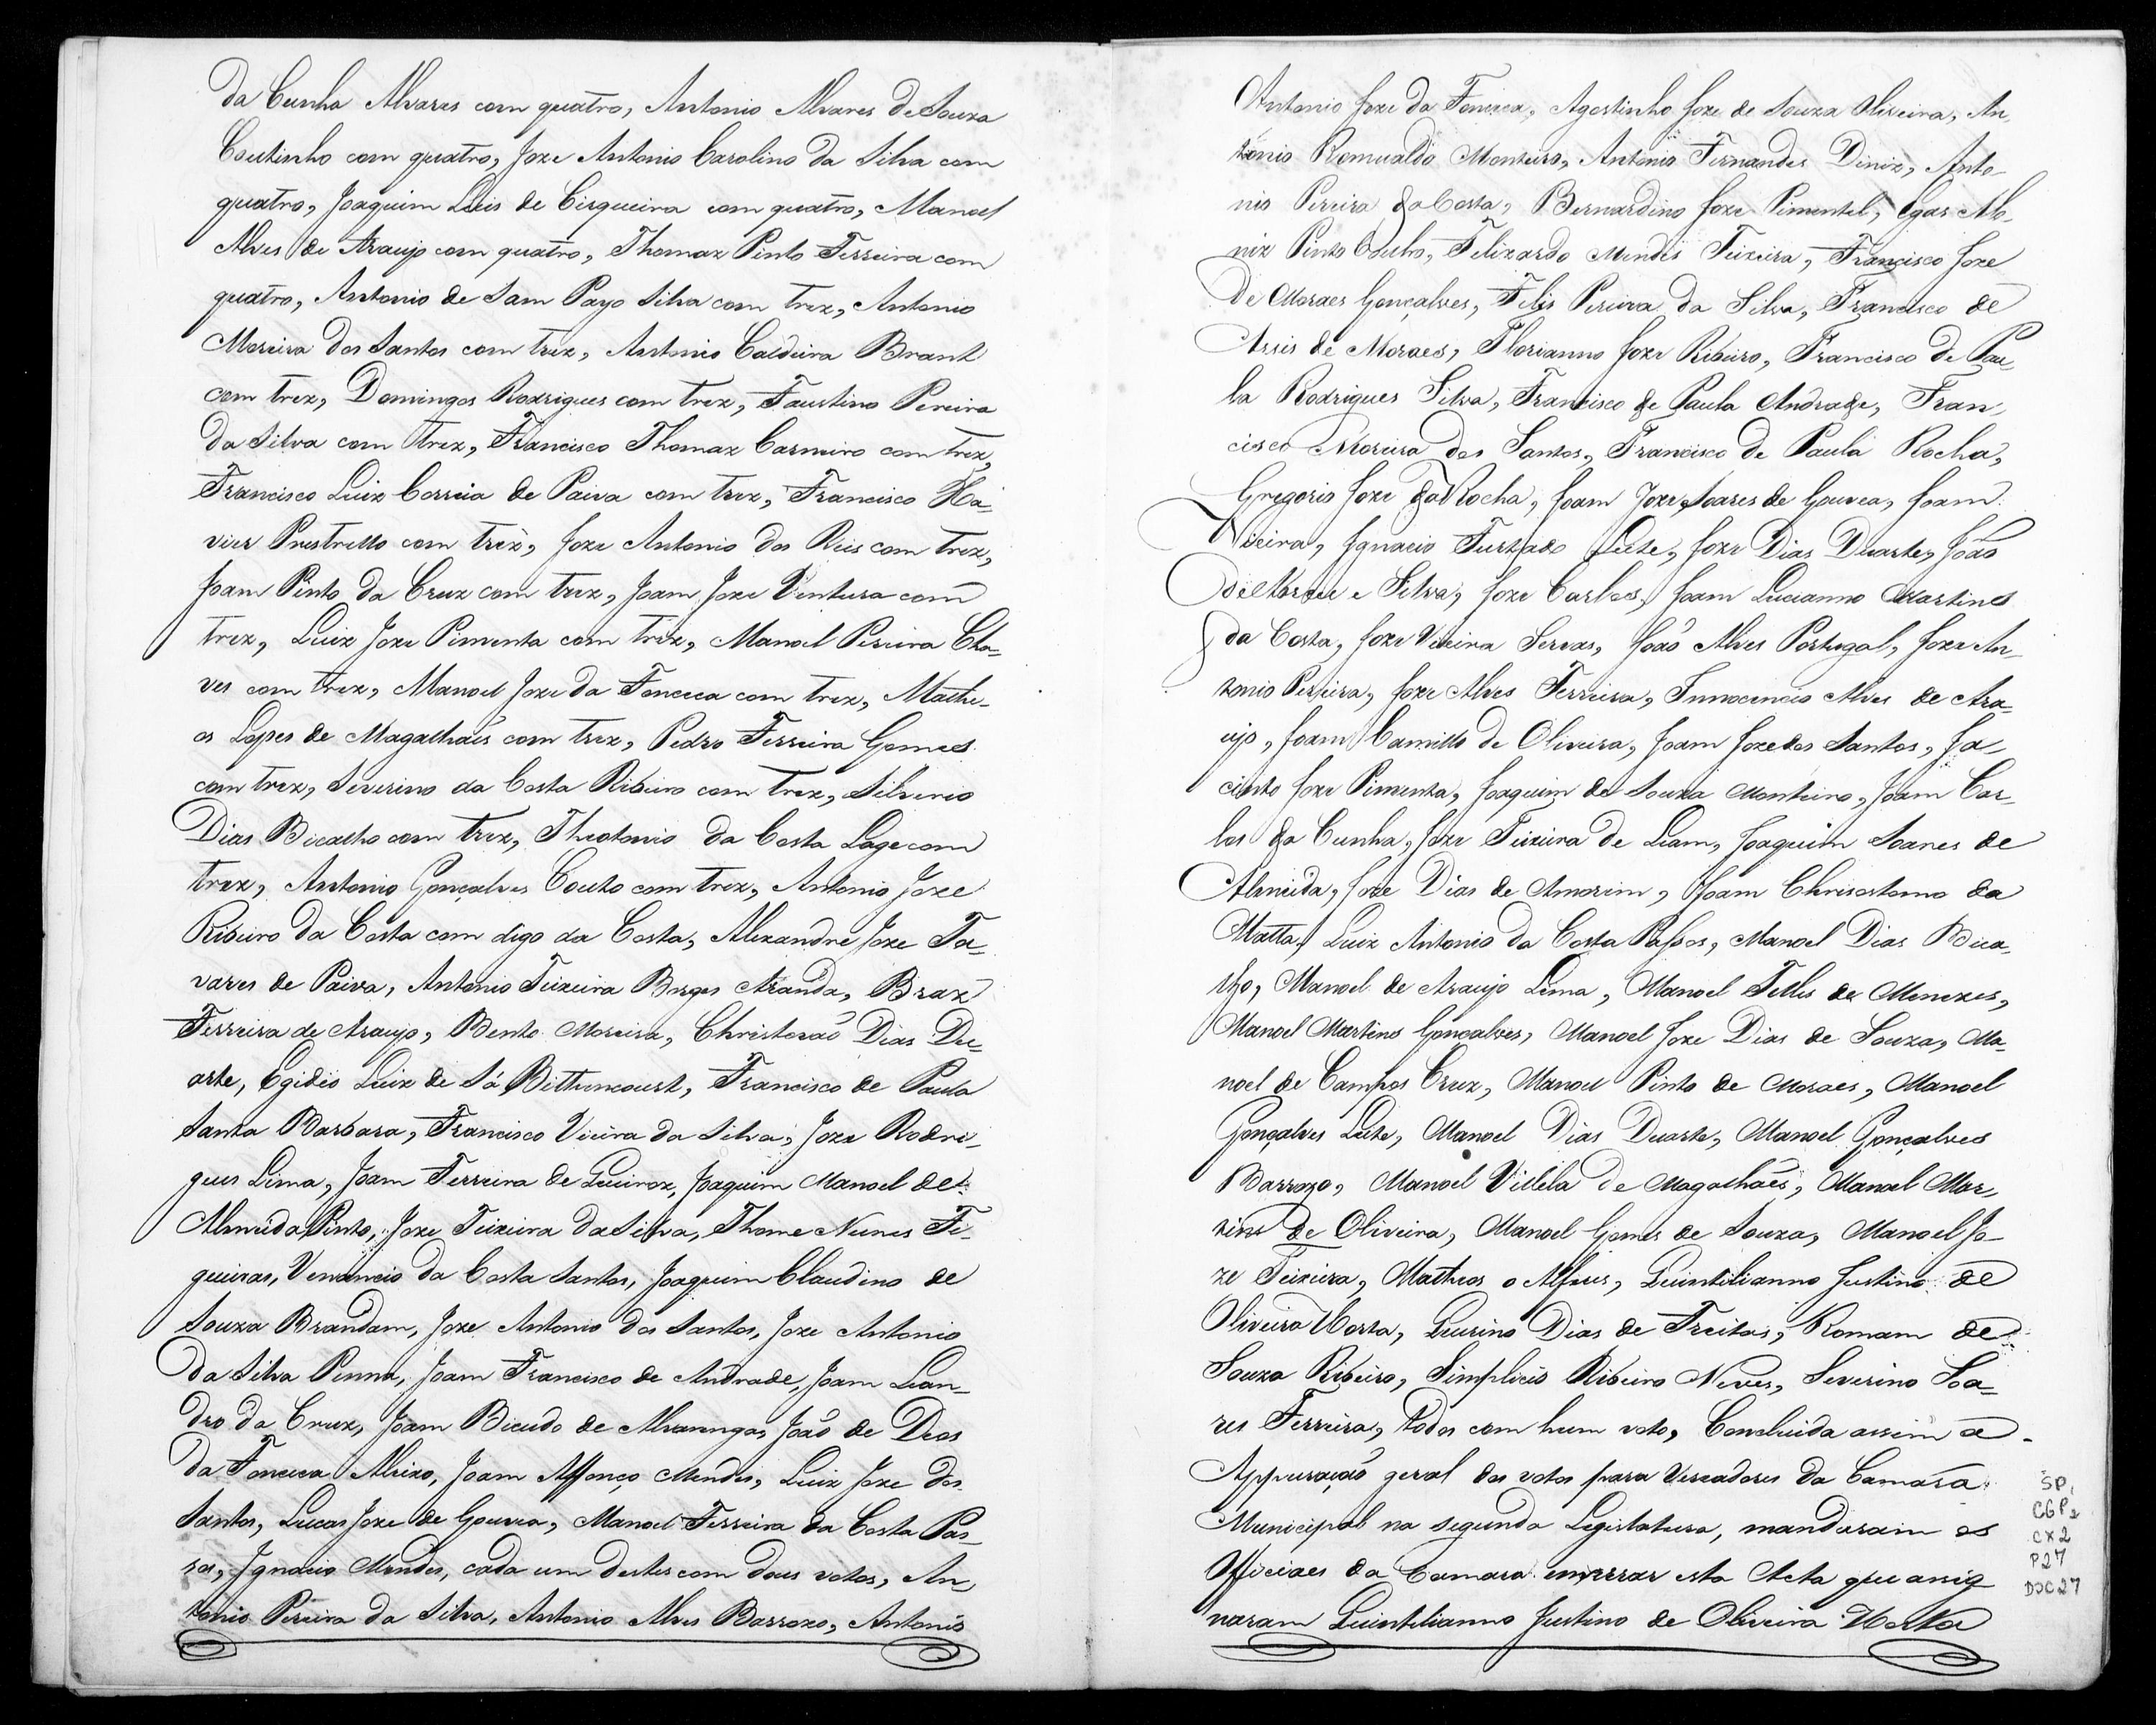 da Cunha Alvares com quatro, Antonio Alvares de Souza
Coutinho com quatro, Joze Antonio Carolino da Silva com
quatro, Joaquim Luis de Cirqueira com quatro, Manoel
Alves de Araujo com quatro, Thomaz Pinto Ferreira com
quatro, Antonio de Sam Payo Silva com trez, Antonio
Moreira dos Santos com trez, Antonio Caldeira Brant
com trez, Domingos Rodrigues com trez, Faustino Pereira
da Silva com trez, Francisco Thomaz Carneiro com trez,
Francisco Luiz Correia de Paiva com trez, Francisco Xa-
vier Prestrello com trez, Joze Antonio dos Reis com trez,
Joam Pinto da Cruz com trez, Joam Joze Ventura com
trez, Luiz Joze Pimenta com trez, Manoel Pereira Cha-
ves com trez, Manoel Joze da Fonceca com trez, Mathe-
os Lopes de Magalhaẽs com trez, Pedro Ferreira Gomes
com trez, Severino da Costa Ribeiro com trez, Silverio
Dias Bicalho com trez, Theotonio da Costa Lage com
trez, Antonio Gonçalves Couto com trez, Antonio Joze
Ribeiro da Costa com digo da Costa, Alexandre Joze Ta-
vares de Paiva, Antonio Teixeira Borges Aranda, Braz
Ferreira de Araujo, Bento Moreira, Christovaõ Dias Du-
arte, Egidio Luiz de Sá Bittencourt, Francisco de Paula
Santa Barbara, Francisco Vieira da Silva, Joze Rodri-
gues Lima, Joam Ferreira de Queiroz, Joaquim Manoel de
Almeida Pinto, Joze Teixeira da Silva, Thome Nunes Fi-
gueiras, Venancio da Costa Santos, Joaquim Claudino de
Souza Brandam, Joze Antonio dos Santos, Joze Antonio
da Silva Penna, Joam Francisco de Andrade, Joam Lean-
dro da Cruz, Joam Bicudo de Alvarenga, Joaõ de Deos
da Fonceca Aleixo, Joam Affonço Mendes, Luiz Joze dos
Santos, Lucas Joze de Gouvea, Manoel Ferreira da Costa Pas-
sos, Ignacio Mendes, cada um destes com dous votos, An-
tonio Pereira da Silva, Antonio Alves Barrozo, Antonio
Antonio Joze da Fonceca, Agostinho Joze de Souza Oliveira, An-
tonio Romualdo Monteiro, Antonio Fernandes Diniz, Anto-
nio Pereira da Costa, Bernardino Joze Pimentel, Egas Mo-
niz Pinto Coelho, Felizardo Mendes Teixeira, Francisco Joze
de Moraes Gonçalves, Felis Pereira da Silva, Francisco de
Assis de Moraes, Florianno Joze Ribeiro, Francisco de Pau-
la Rodrigues Silva, Francisco de Paula Andrade, Fran-
cisco Moreira dos Santos, Francisco de Paula Rocha,
Gregorio Joze da Rocha, Joam Joze Soares de Gouvea, Joam
Vieira, Ignacio Furtado Leite, Joze Dias Duarte, Joaõ
de Abreu e Silva, Joze Carlos, Joam Lucianno Martins
da Costa, Joze Vieira Servas, Joaõ Alves Portugal, Joze An-
tonio Pereira, Joze Alves Ferreira, Innocencio Alves de Ara-
ujo, Joam Camillo de Oliveira, Joam Joze dos Santos, Ja-
cinto Joze Pimenta, Joaquim de Souza Monteiro, Joam Car-
los da Cunha, Joze Teixeira de Leam, Joaquim Soares de
Almeida, Joze Dias de Amorim, Joam Chrisostomo da
Matta, Luiz Antonio da Costa Passos, Manoel Dias Bica-
lho, Manoel de Araujo Lima, Manoel Telles de Menezes,
Manoel Martins Gonçalves, Manoel Joze Dias de Souza, Ma-
noel de Campos Cruz, Manoel Pinto de Moraes, Manoel
Gonçalves Leite, Manoel Dias Duarte, Manoel Gonçalves
Barrozo, Manoel Villela de Magalhaẽs, Manoel Mar-
tins de Oliveira, Manoel Gomes de Souza, Manoel Jo-
ze Teixeira, Matheos o Alferes, Quintilianno Justino de
Oliveira Horta, Quirino Dias de Freitas, Romam de
Souza Ribeiro, Simplicio Ribeiro Neves, Severino Soa-
res Ferreira, todos com hum voto, Concluida assim a
Appuraçaõ geral dos votos para Vereadores da Camara
Municipal na segunda Legislatura, mandaram os
Officiaes da Camara encerrar esta Acta que assig
naram Quintilianno Justino de Oliveira Horta
SP,
CGP2
CX2
P27
DOC27